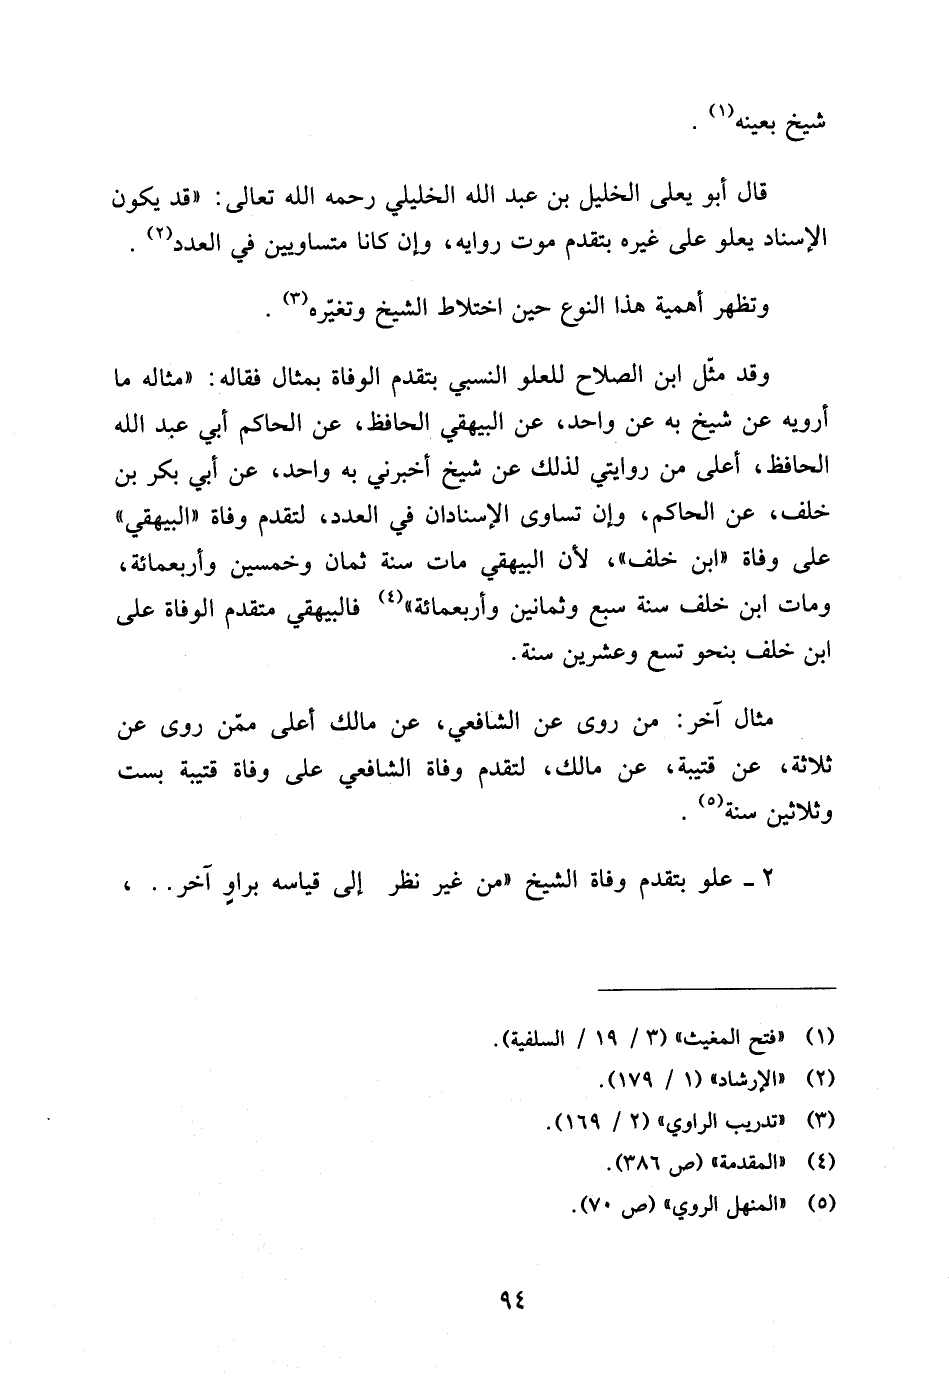 شيخ بعينه(١) .
قال أبو يعلى الخليل بن عبد الله الخليلي رحمه الله تعالى: «قد يكون
الإسناد يعلو على غيره بتقدم موت روايه، وإن كانا متساويين في العدد(٢) .
وتظهر أهمية هذا النوع حين اختلاط الشيخ وتغيّره(٣) .
وقد مثّل ابن الصلاح للعلو النسبي بتقدم الوفاة بمثال فقاله: «مثاله ما
أرويه عن شيخ به عن واحد، عن البيهقي الحافظ، عن الحاكم أبي عبد الله
الحافظ، أعلى من روايتي لذلك عن شيخ أخبرني به واحد، عن أبي بكر بن
خلف، عن الحاكم، وإن تساوى الإسنادان في العدد، لتقدم وفاة «البيهقي»
على وفاة «ابن خلف»، لأن البيهقي مات سنة ثمان وخمسين وأربعمائة،
ومات ابن خلف سنة سبع وثمانين وأربعمائة»(٤) فالبيهقي متقدم الوفاة على
ابن خلف بنحو تسع وعشرين سنة.
مثال آخر: من روى عن الشافعي، عن مالك أعلى ممّن روى عن
ثلاثة، عن قتيبة، عن مالك، لتقدم وفاة الشافعي على وفاة قتيبة بست
وثلاثين سنة(٥) .
٢ ـ علو بتقدم وفاة الشيخ «من غير نظر إلى قياسه براوٍ آخر.. ،
(١) «فتح المغيث» (٣ / ١٩ / السلفية).
(٢) «الإرشاد» (١ / ١٧٩).
(٣) «تدريب الراوي» (٢ / ١٦٩).
(٤) «المقدمة» (ص ٣٨٦).
(٥) «المنهل الروي» (ص ٧٠).
٩٤